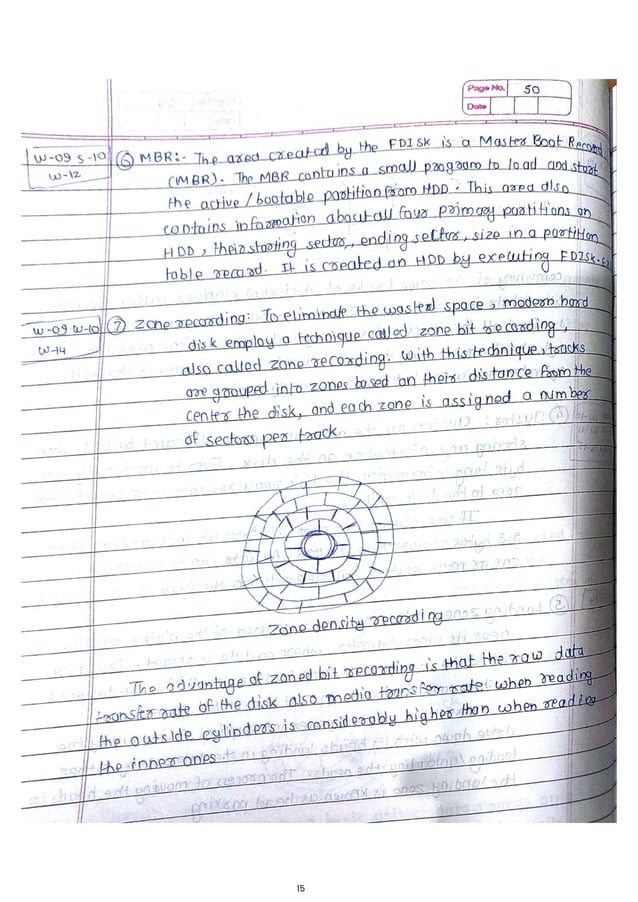 Page No. 50
Date
W-09 S-10
W-12
⑥ MBR:- The area created by the FDISK is a Master Boot Record
(MBR). The MBR contains a small program to load and start
the active / bootable partition from HDD. This area also
contains information about all four primary partitions on
HDD, their starting sector, ending sector, size in a partition
table record. It is created on HDD by executing FDISK.
W-09 W-10
W-14
⑦ Zone recording: To eliminate the wasted space, modern hard
disk employ a technique called zone bit recording,
also called zone recording. With this technique, tracks
are grouped into zones based on their distance from the
center the disk, and each zone is assigned a number
of sectors per track.
Zone density recording
The advantage of zoned bit recording is that the raw data
transfer rate of the disk also media transfer rate when reading
the outside cylinders is considerably higher than when reading
the inner ones
15